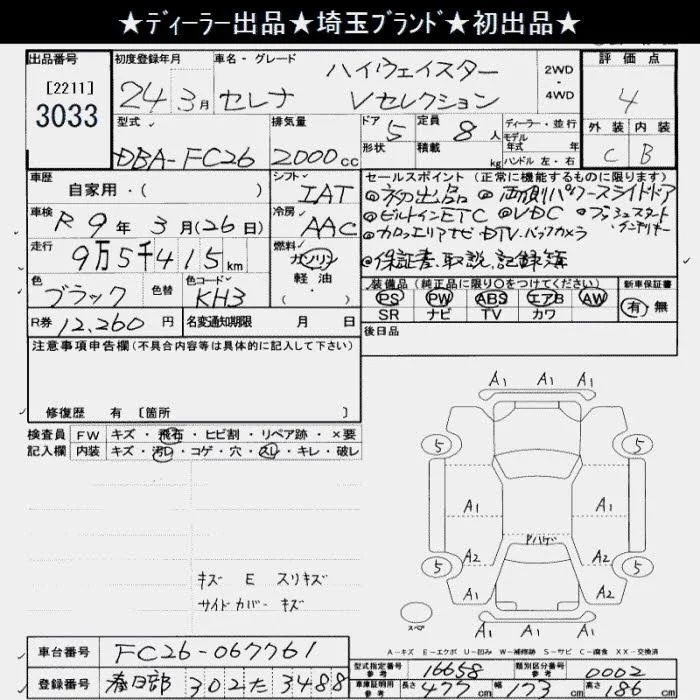 ★ディーラー出品★埼玉ブランド★初出品★
出品番号 初度登録年月 車名・グレード 評価点
[2211]
3033
24年 3月 セレナ ハイウェイスター Vセレクション
2WD
・
4WD
4
型式 排気量 ドア 定員 ディーラー・並行 外装 内装
DBA-FC26 2000cc 5 8人
形状 積載 kg
モデル年式 年
ハンドル 左・右
C B
車歴 シフト セールスポイント (正常に機能するものに限ります)
自家用・( ) IAT
◎初出品 ◎両側パワースライドドア
車検 R9年 3月(26日) 冷房 AAC
◎ビルトインETC ◎VDC ◎プッシュスタート
インテリキー
走行 9万5千415km 燃料 ガソリン
軽油
( )
◎カロッツェリアナビ DTV バックカメラ
◎保証書、取説、記録簿
色 ブラック 色替 色コード KH3
装備品 (純正品に限り○をつけてください) 新車保証書
PS PW ABS エアB AW 有・無
SR ナビ TV カワ
R券 12,260円 名変通知期限 月 日
後日品
注意事項申告欄(不具合内容等は具体的に記入して下さい)
修復歴 有 [箇所 ]
検査員 FW キズ・飛石・ヒビ割・リペア跡・×要
記入欄 内装 キズ・汚レ・コゲ・穴・スレ・キレ・破レ
キズ E スリキズ
サイドカバー キズ
A1 A1 A1
5 5
A1 A1
Pハゲ
A2 A2
5 5
A1 A2
A1 A1 A1
スペア
A-キズ E-エクボ U-凹み W-補修跡 S-サビ C-腐食 XX-交換済
車台番号 FC26-067761
型式指定番号 参考 16658 類別区分番号 参考 0002
登録番号 春日部 302 た 3488
車庫証明用 参考 長さ 477cm 幅 173cm 高さ 186cm